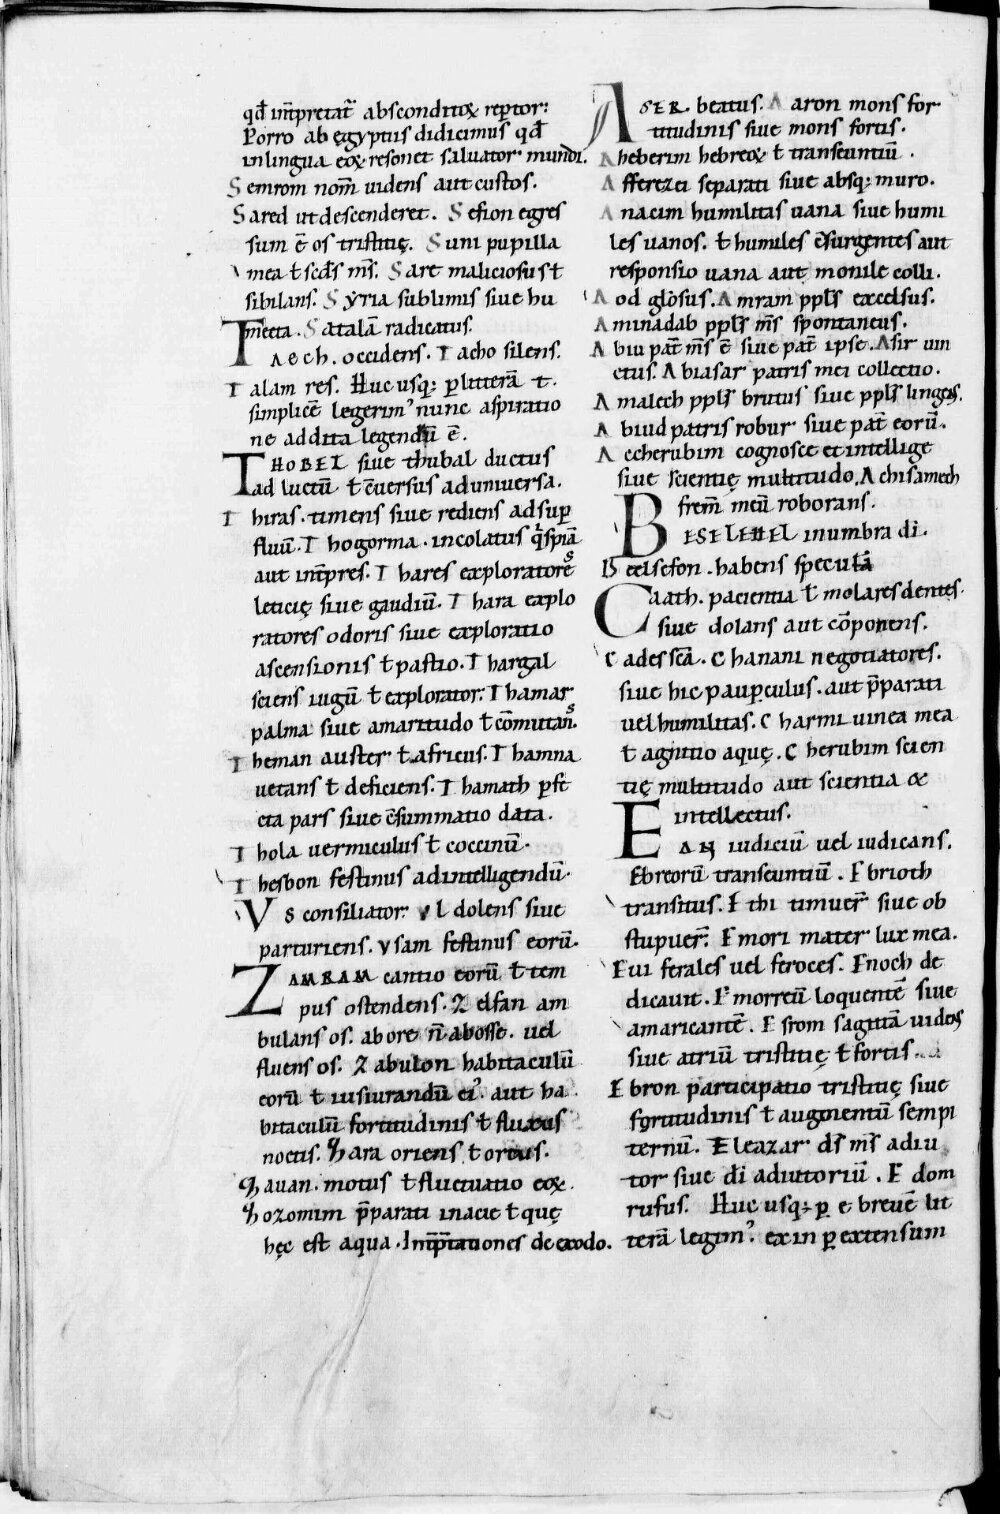 qđ int̄p̄retat̄ absconditoꝝ rep̄tor:
Porro ab ęgyptiis didicimus qđ
in lingua eoꝝ resonet saluator mundi.
Semrom nom̄ uidens aut custos.
Sared ut descenderet. Sefion egres
sum ē os tristitię. Suni pupilla
mea ł scđs m̄s. Sare maliciosus ł
sibilans. Syria sublimis siue hu
mecta. Satalā radicatus.
TAECH. occidens. Tacho silens.
Talam res. Huc usq; p litterā t.
simplicē legerim' nunc aspiratio
ne addita legendū ē.
THOBEL siue thubal ductus
ad luctū ł c̄uersus ad uniuersa.
Thiras. timens siue rediens ad sup
fluū. Thogorma. incolatus q̄spiā
aut int̄pres. Thares exploratores
leticię siue gaudiū. Thara explo
ratores odoris siue exploratio
ascensionis ł pastio. Thargal
sciens iugū ł explorator. Thamar
palma siue amaritudo ł cōmutans.
Theman auster ł africus. Thamna
uetans ł deficiens. Thamath pfc̄
cta pars siue c̄summatio data.
Thola uermiculus ł coccinū.
Thesbon festinus ad intelligendū.
VS consiliator. Vl dolens siue
parturiens. Vsam festinus eorū.
ZAMRAM cantio eorū ł tem
pus ostendens. Zelfan am
bulans os. ab ore n̄ ab osse. uel
fluens os. Zabulon habitaculū
eorū ł iusiurandū ei'. aut ha
bitaculū fortitudinis ł fluxus
noctis. Zara oriens ł ortus.
Zauan. motus ł fluctuatio eoꝝ.
Zozomim p̄parati in acie ł quę
hęc est aqua. Int̄p̄tationes de exodo.
ASER. beatus. Aaron mons for
titudinis siue mons fortis.
Aheberim hebreoꝝ ł transeuntiū.
Afferezei separati siue absq; muro.
Anacim humilitas uana siue humi
les uanos. ł humiles c̄surgentes aut
responsio uana aut monile colli.
Aod gl̄osus. Amram ppl̄s excelsus.
Aminadab ppl̄s m̄s spontaneus.
Abiu pat̄ m̄s ē siue pat̄ ipse. Asir uin
ctus. Abiasar patris mei collectio.
Amalech ppl̄s brutus siue ppl̄s linges.
Abiud patris robur siue pat̄ eorū.
Aecherubim cognosce et intellige
siue scientię multitudo. Achisamech
frem̄ meū roborans.
BESELEHEL in umbra di.
Beelsefon. habens speculā
Caath. pacientia ł molares dentes.
siue dolans aut cōponens.
Cades sc̄a. Chanani negotiatores.
siue hic paup̄culus. aut p̄parati
uel humilitas. Charmi uinea mea
ł agnitio aquę. Cherubim scien
tię multitudo aut scientia &
intellectus.
EAN iudiciū uel iudicans.
Ebreorū transeuntiū. Ebrioth
transitus. Ethi timuer̄ siue ob
stupuer̄. Emori mater lux mea.
Eui ferales uel feroces. Enoch de
dicauit. Emorreū loquentē siue
amaricantē. Esrom sagittā uidens
siue atriū tristitię ł fortis.
Ebron participatio tristitię siue
fortitudinis ł augmentū sempi
ternū. Eleazar ds̄ m̄s adiu
tor siue dī adiutoriū. Edom
rufus. Huc usq; p e breuē lit
terā legim'. exin p extensum